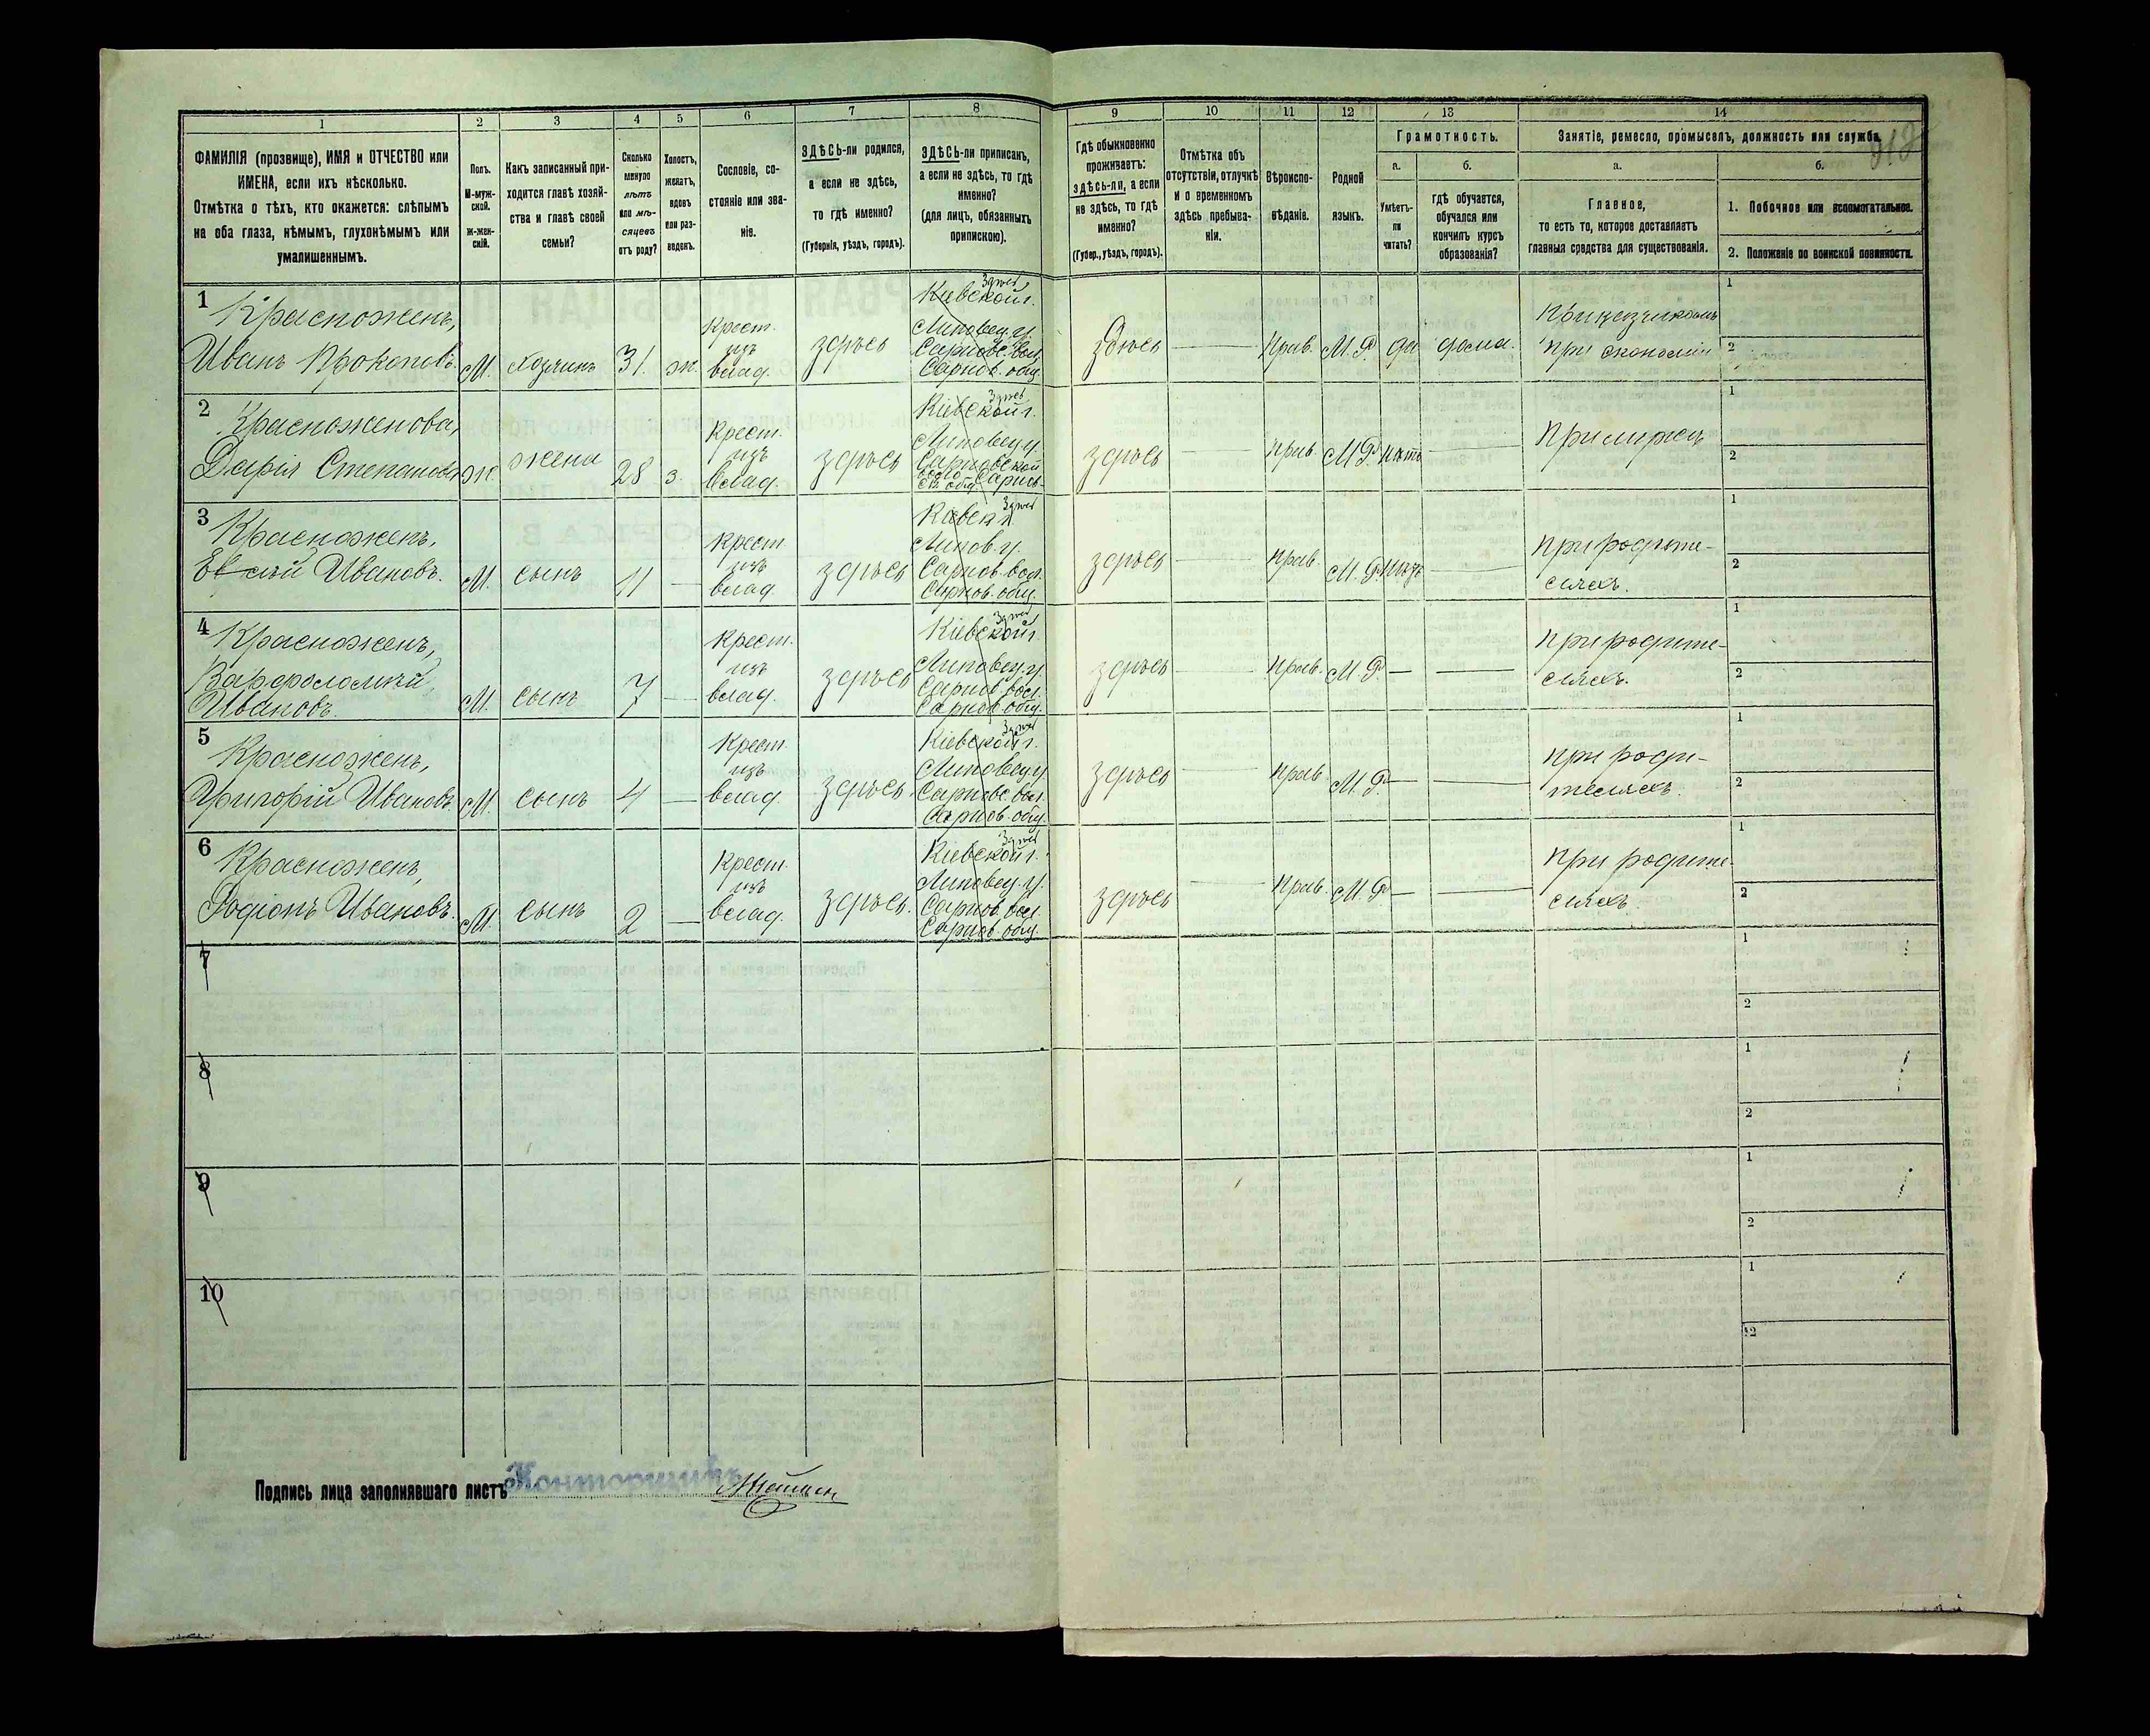 1
2
3
4
5
6
7
8
9
10
11
12
13
14
ФАМИЛІЯ (прозвище), ИМЯ и ОТЧЕСТВО или
ИМЕНА, если ихъ нѣсколько.
Отмѣтка о тѣхъ, кто окажется: слѣпымъ
на оба глаза, нѣмымъ, глухонѣмымъ или
умалишеннымъ.
Полъ.
М-муж-
ской.
Ж-жен-
скій.
Какъ записанный при-
ходится главѣ хозяй-
ства и главѣ своей
семьи?
Сколько
минуло
лѣтъ
или мѣ-
сяцевъ
отъ роду?
Холостъ,
женатъ,
вдовъ
или раз-
веденъ.
Сословіе, со-
стояніе или зва-
ніе.
ЗДѢСЬ-ли родился,
а если не здѣсь,
то гдѣ именно?
(Губернія, уѣздъ, городъ).
ЗДѢСЬ-ли приписанъ,
а если не здѣсь, то гдѣ
именно?
(для лицъ, обязанныхъ
припискою).
Гдѣ обыкновенно
проживаетъ:
здѣсь-ли, а если
не здѣсь, то гдѣ
именно?
(Губер., уѣздъ, городъ).
Отмѣтка объ
отсутствіи, отлучкѣ
и о временномъ
здѣсь пребыва-
ніи.
Вѣроиспо-
вѣданіе.
Родной
языкъ.
Грамотность.
а.
Умѣетъ-
ли
читать?
б.
гдѣ обучается,
обучался или
кончилъ курсъ
образованія?
Занятіе, ремесло, промыселъ, должность или служба.
а.
Главное,
то есть то, которое доставляетъ
главныя средства для существованія.
б.
1. Побочное или вспомогательное.
2. Положеніе по воинской повинности.
1
Красноженъ,
Иванъ Прокоповъ.
М.
хозяинъ
31.
ж.
Крест.
изъ
влад.
здѣсь
Здѣсь
Кіевской г.
Липовец. у.
Сарновс. вол.
Сарнов. общ.
здѣсь
Прав.
М. Р.
да
дома.
Приказчикомъ
при экономіи
1
2
2
Красноженова,
Дарія Степанова
ж.
жена
28
з.
Крест.
изъ
влад.
здѣсь
Здѣсь
Кіевской г.
Липовец. у.
Сарновской
здѣсь
Прав.
М. Р.
нѣтъ
При мужѣ
1
2
3
Красноженъ,
Ивановъ.
М.
сынъ
11
Крест.
изъ
влад.
здѣсь
Здѣсь
Липов. у.
Сарнов. вол.
Сарнов. общ.
здѣсь
прав.
М. Р.
нѣтъ
при родите-
ляхъ.
1
2
4
Красноженъ,
Варфоломѣй
Ивановъ.
М.
сынъ
7
Крест.
изъ
влад.
здѣсь
Здѣсь
Кіевской г.
Липовец. у.
Сарнов. вол.
Сарнов. общ.
здѣсь
Прав.
М. Р.
при родите-
ляхъ.
1
2
5
Красноженъ,
Григорій Ивановъ.
М.
сынъ
4
Крест.
изъ
влад.
здѣсь
Здѣсь
Кіевской г.
Липовец. у.
Сарновс. вол.
Сарнов. общ.
здѣсь
прав.
М. Р.
при роди-
теляхъ.
1
2
6
Красноженъ,
Родіонъ Ивановъ.
М.
сынъ
2
Крест.
изъ
влад.
здѣсь.
Здѣсь
Кіевской г.
Липовец. у.
Сарнов. вол.
Сарнов. общ.
здѣсь
Прав.
М. Р.
при родите-
ляхъ.
1
2
7
1
2
8
1
2
9
1
2
10
1
2
Подпись лица заполнявшаго листъ Конторщикъ